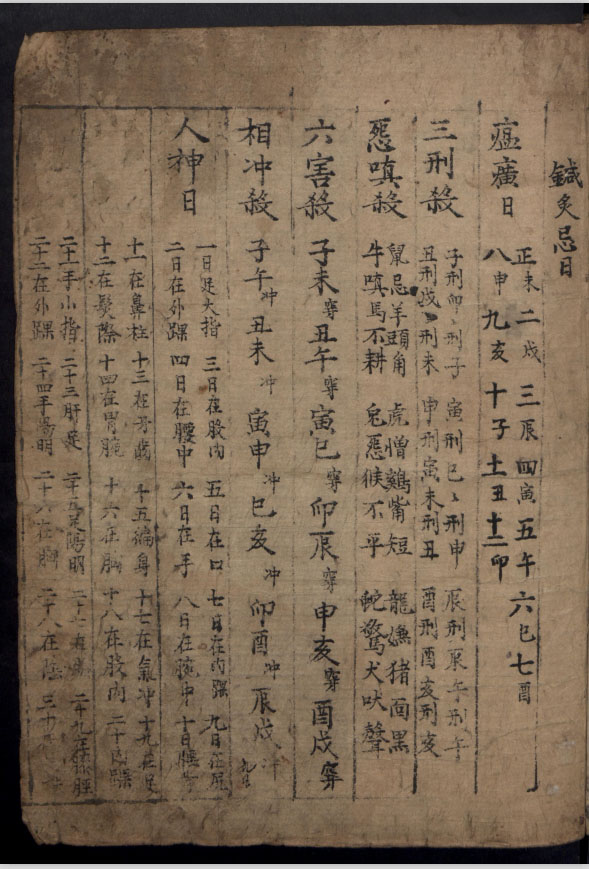 鍼灸忌日
瘟癀日
正未 二戌 三辰 四寅 五午 六巳 七酉
八申 九亥 十子 十一丑 十二卯
三刑殺
子刑卯〻刑子 寅刑巳〻刑申 辰刑辰午刑午
丑刑戌〻刑未 申刑寅未刑丑 酉刑酉亥刑亥
惡嗔殺
鼠忌羊頭角 虎憎鷄觜短 龍嫌猪面黑
牛嗔馬不耕 兔惡候不平 蛇驚犬吠聲
六害殺 子未穿 丑午穿 寅巳穿 卯辰穿 申亥穿 酉戌穿
相冲殺 子午冲 丑未冲 寅申冲 巳亥冲 卯酉冲 辰戌冲
人神日
一日足大指 三日在股内 五日在口 七日在内踝 九日在尻
二日在外踝 四日在腰中 六日在手 八日在腕中 十日腰
十一在鼻柱 十三在牙齒 十五徧身 十七在氣冲 十九在足
十二在髮際 十四在胃腕 十六在胸 十八在股内 二十内踝
二十一手小指 二十三肝足 二十五足陽明 二十七 二十九在膝脛
二十二在外踝 二十四手陽明 二十六在胸 二十八在陰 三十